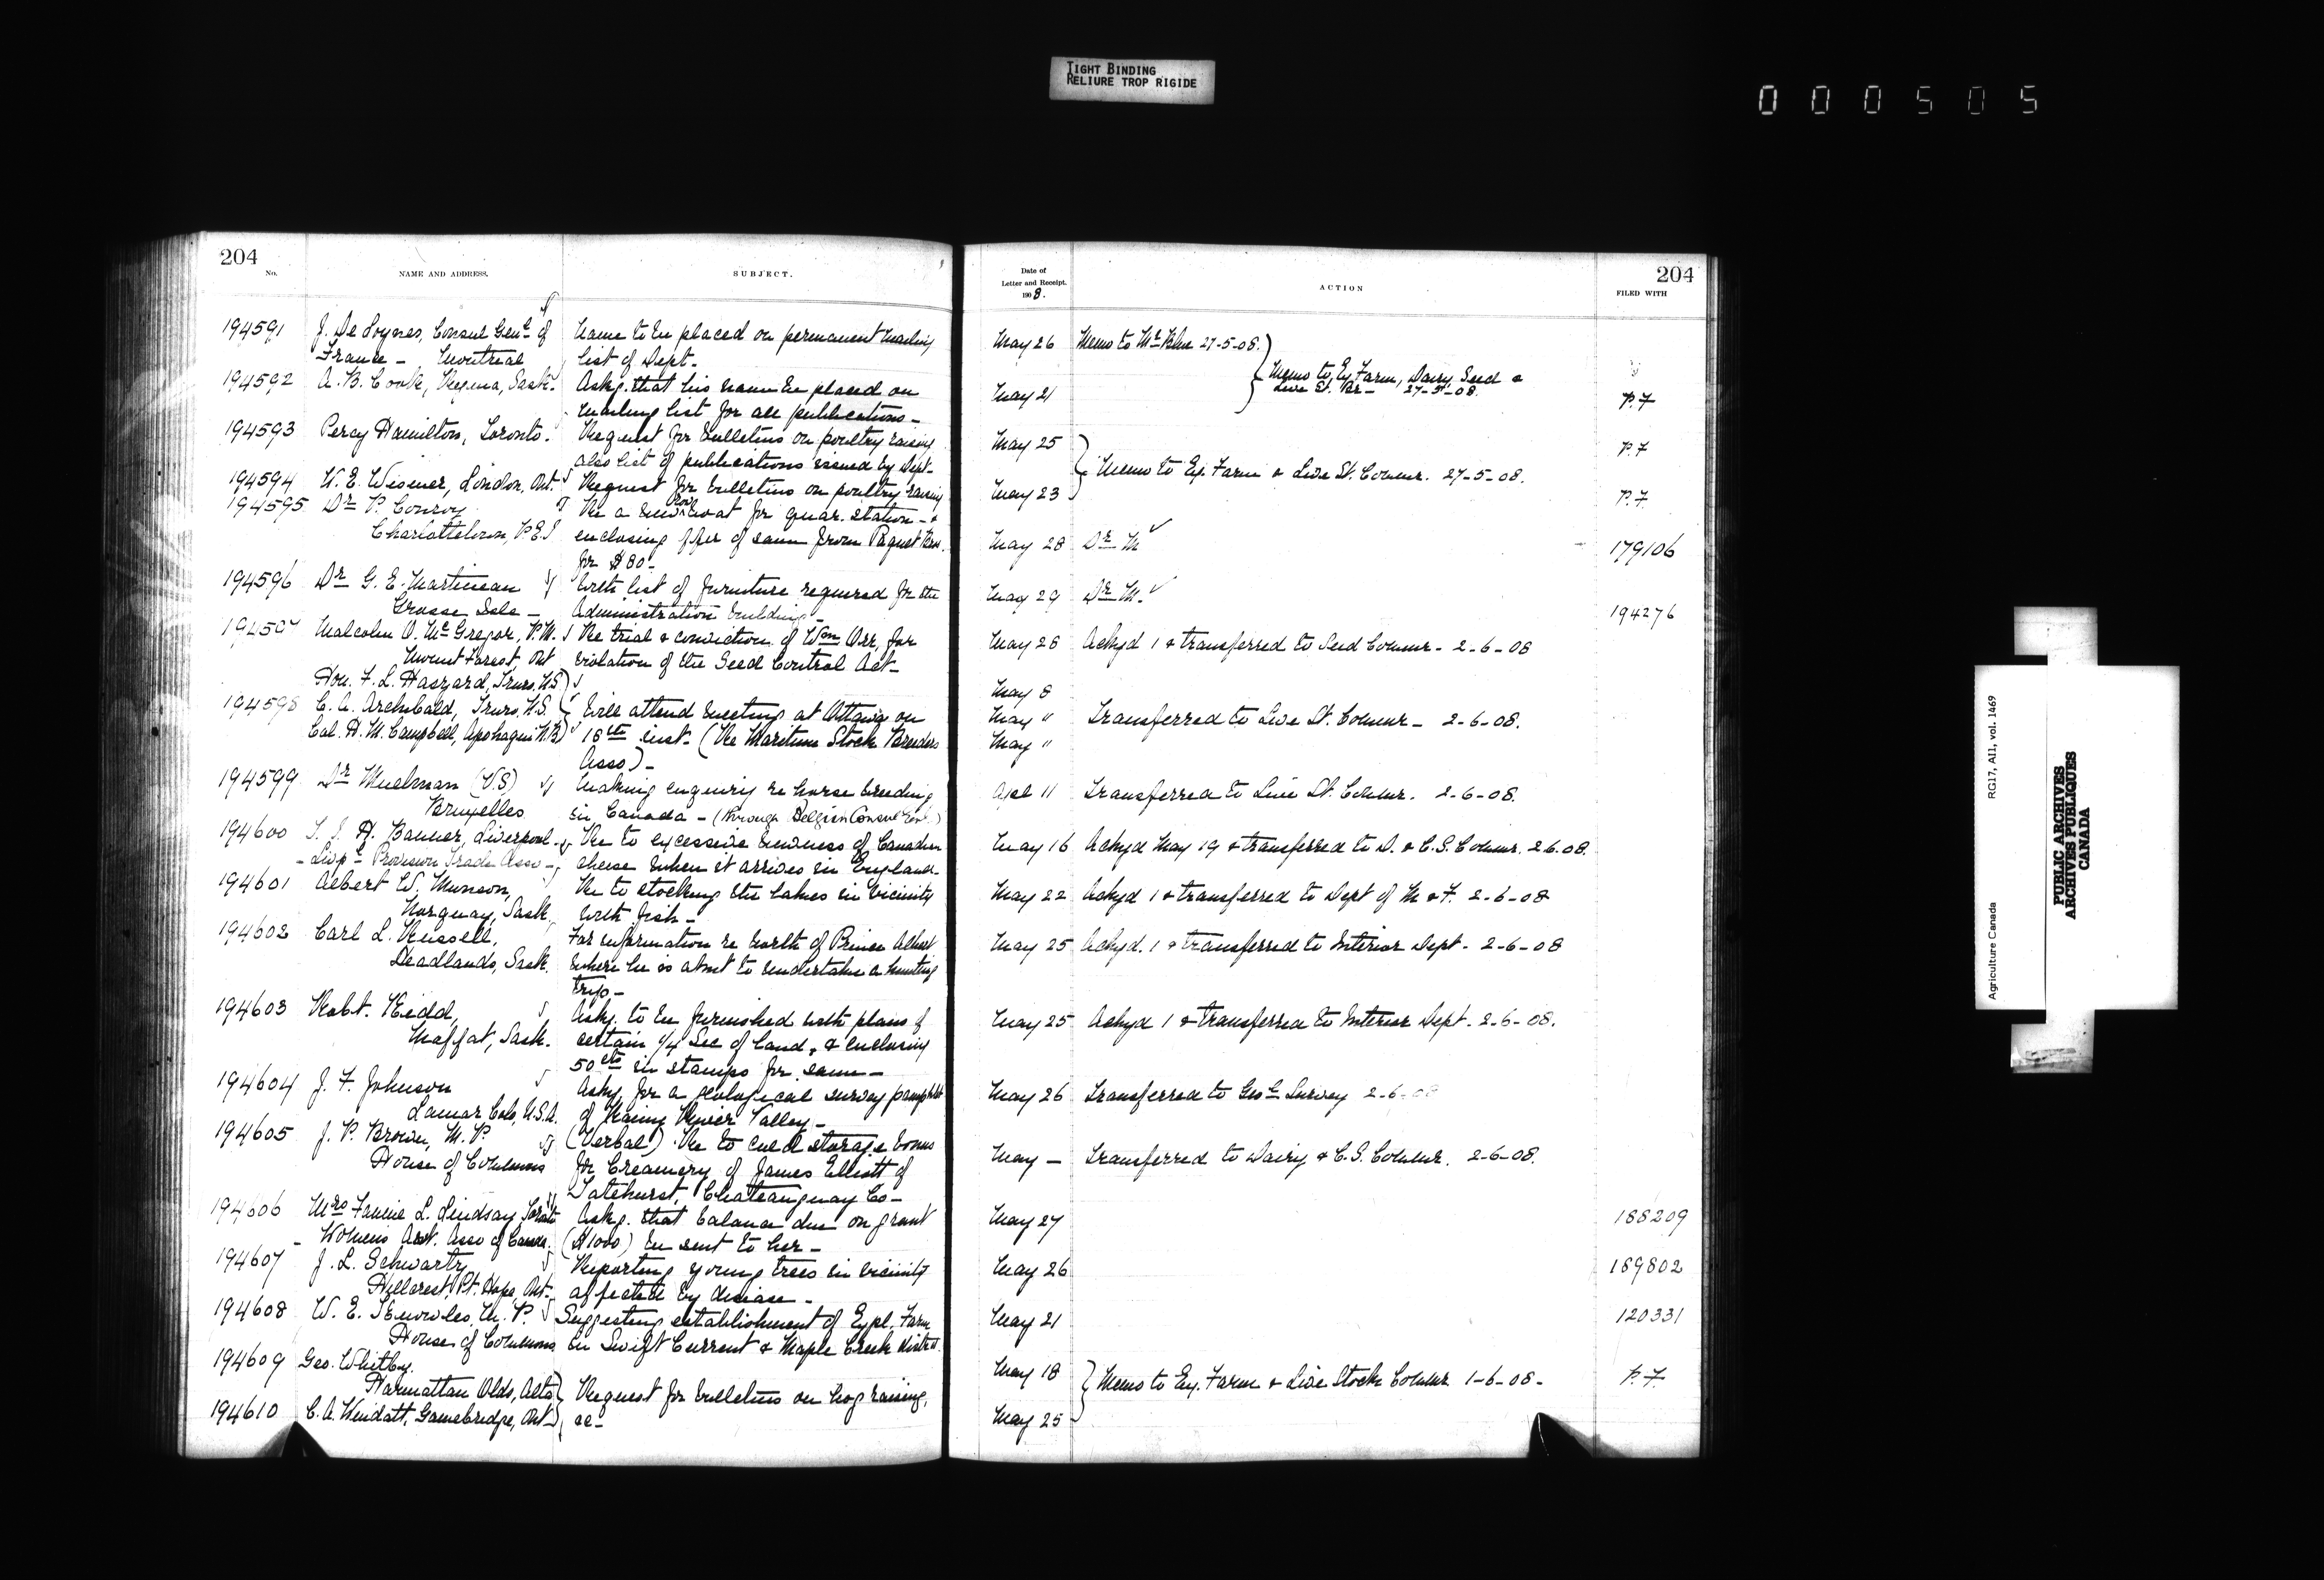 TIGHT BINDING
RELIURE TROP RIGIDE
000505
204
No.
NAME AND ADDRESS.
SUBJECT.
194591 J. De Loynes, Consul Genl. of
France - Montreal
Name to be placed on permanent mailing
list of Dept-
194592 A. B. Cook, Regina, Sask.
Askg. that his name be placed on
mailing list for all publications-
194593 Percy Hamilton, Toronto.
Request for bulletins on poultry raising
also list of publications issued by Dept-
194594 W. E. Wismer, London, Ont.
Request for bulletins on poultry raising
194595 Dr P. Conroy
Charlottetown, P.E.I
Re a new row boat for quar. station - &
enclosing offer of same from Paquet Bros.
for $80-
194596 Dr G. E. Martineau
Grosse Isle -
With list of furniture required for the
Administration building-
194597 Malcolm D. McGregor, P.M.
Mount Forest, Ont
Re trial & conviction of Wm Orr, for
violation of the Seed Control Act-
Hon. F. L. Haszard, Truro, N.S.
194598 C. A. Archibald, Truro, N.S.
Col. H. M. Campbell, Apohaqui N.B.
Will attend meeting at Ottawa on
18th inst- (Re Maritime Stock Breeders
Asso)-
194599 Dr (V.S)
Bruxelles
Making enquiry re horse breeding
in Canada - (through Belgian Consul Genl.)
194600 Banner, Liverpool-
- Livpl Provision Trade Asso -
Re to excessive newness of Canadian
cheese when it arrives in England-
194601 Albert W. Munson,
Norquay, Sask.
Re to stocking the lakes in vicinity
with fish-
194602 Carl L. Russell,
Deadlands, Sask.
For information re north of Prince Albert
where he is about to undertake a hunting
trip-
194603 Robt. Kidd,
Moffat, Sask.
Askg. to be furnished with plans of
certain 1/4 Sec of land, & enclosing
50 cts in stamps for same-
194604 J. F. Johnson
Lamar Colo, U.S.A.
Askg. for a geological survey pamphlet
of Rainy River Valley-
194605 J. P. Brown, M.P.
House of Commons
(Verbal) Re to cold storage bonus
for Creamery of James Elliott of
Tatehurst, Chateauguay Co-
194606 Mrs Fannie L. Lindsay Toronto
- Womens Art. Asso of Canada.
Askg. that balance due on grant
($1000) be sent to her-
194607 J. L. Schwartz
Hillcrest, Pt. Hope, Ont-
Reporting young trees in vicinity
affected by disease-
194608 W. E. Knowles, M.P.
House of Commons
Suggesting establishment of Expl. Farm
in Swift Current & Maple Creek district
194609 Geo. Whitby.
Harmattan Olds, Alta
194610 C. A. Windatt, Gamebridge, Ont-
Request for bulletins on hog raising,
&c-
204
Date of
Letter and Receipt.
1908.
ACTION
FILED WITH
May 26 Memo to Mr Blue 27-5-08.
Memo to Ex. Farm, Dairy, Seed &
Live St. Br- 27-5-08.
May 21 P.F
May 25 P.F
Memo to Ex. Farm & Live St. Commr. 27-5-08.
May 23 P.F.
May 28 Dr M 179106
May 29 Dr M. 194276
May 28 Ackgd 1 & transferred to Seed Commr- 2-6-08
May 8
May " Transferred to Live St. Commr- 2-6-08.
May "
Apl 11 Transferred to Live St. Commr. 2-6-08.
May 16 Ackgd May 19 & transferred to D. & C.S. Commr. 2.6.08.
May 22 Ackgd 1 & transferred to Dept of M & F. 2-6-08
May 25 Ackgd. 1 & transferred to Interior Dept- 2-6-08
May 25 Ackgd 1 & transferred to Interior Dept- 2-6-08.
May 26 Transferred to Geol Survey 2-6-08
May - Transferred to Dairy & C.S. Commr. 2-6-08.
May 27 188209
May 26 189802
May 21 120331
May 18 Memo to Ex. Farm & Live Stock Commr 1-6-08- P.F.
May 25
Agriculture Canada RG17, AII, vol. 1469
PUBLIC ARCHIVES
ARCHIVES PUBLIQUES
CANADA